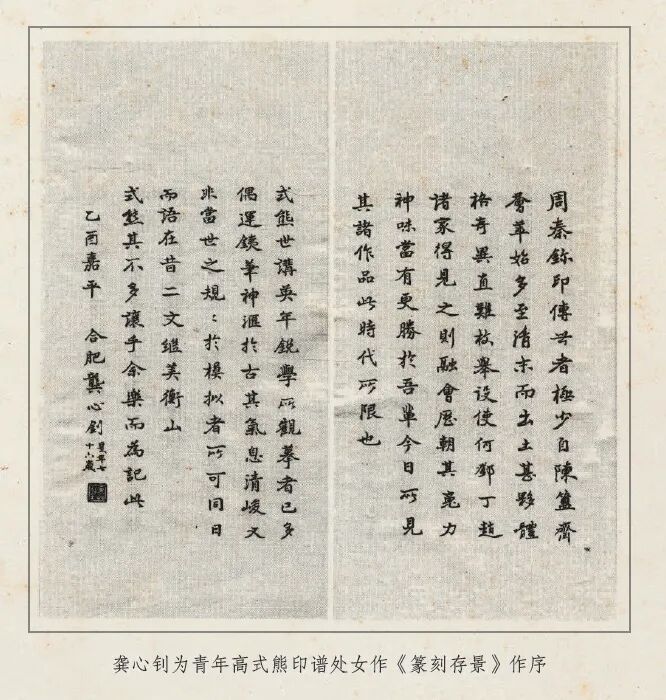 周秦鉨印傳世者極少自陳簠齋
薈萃始多至清末而出土甚夥體
格奇異直難枚舉設使何鄧丁趙
諸家得見之則融會歷朝其毫力
神味當有更勝於吾輩今日所見
其諸作品此時代所限也
式熊世講英年銳學所觀摹者已多
偶運鐵筆神滙於古其氣息清峻又
非當世之規〻於模擬者所可同日
而語在昔二文繼美衡山
式熊其不多讓乎余樂而為記此
乙酉嘉平 合肥龔心釗 年七十六歲
龚心钊为青年高式熊印谱处女作《篆刻存景》作序